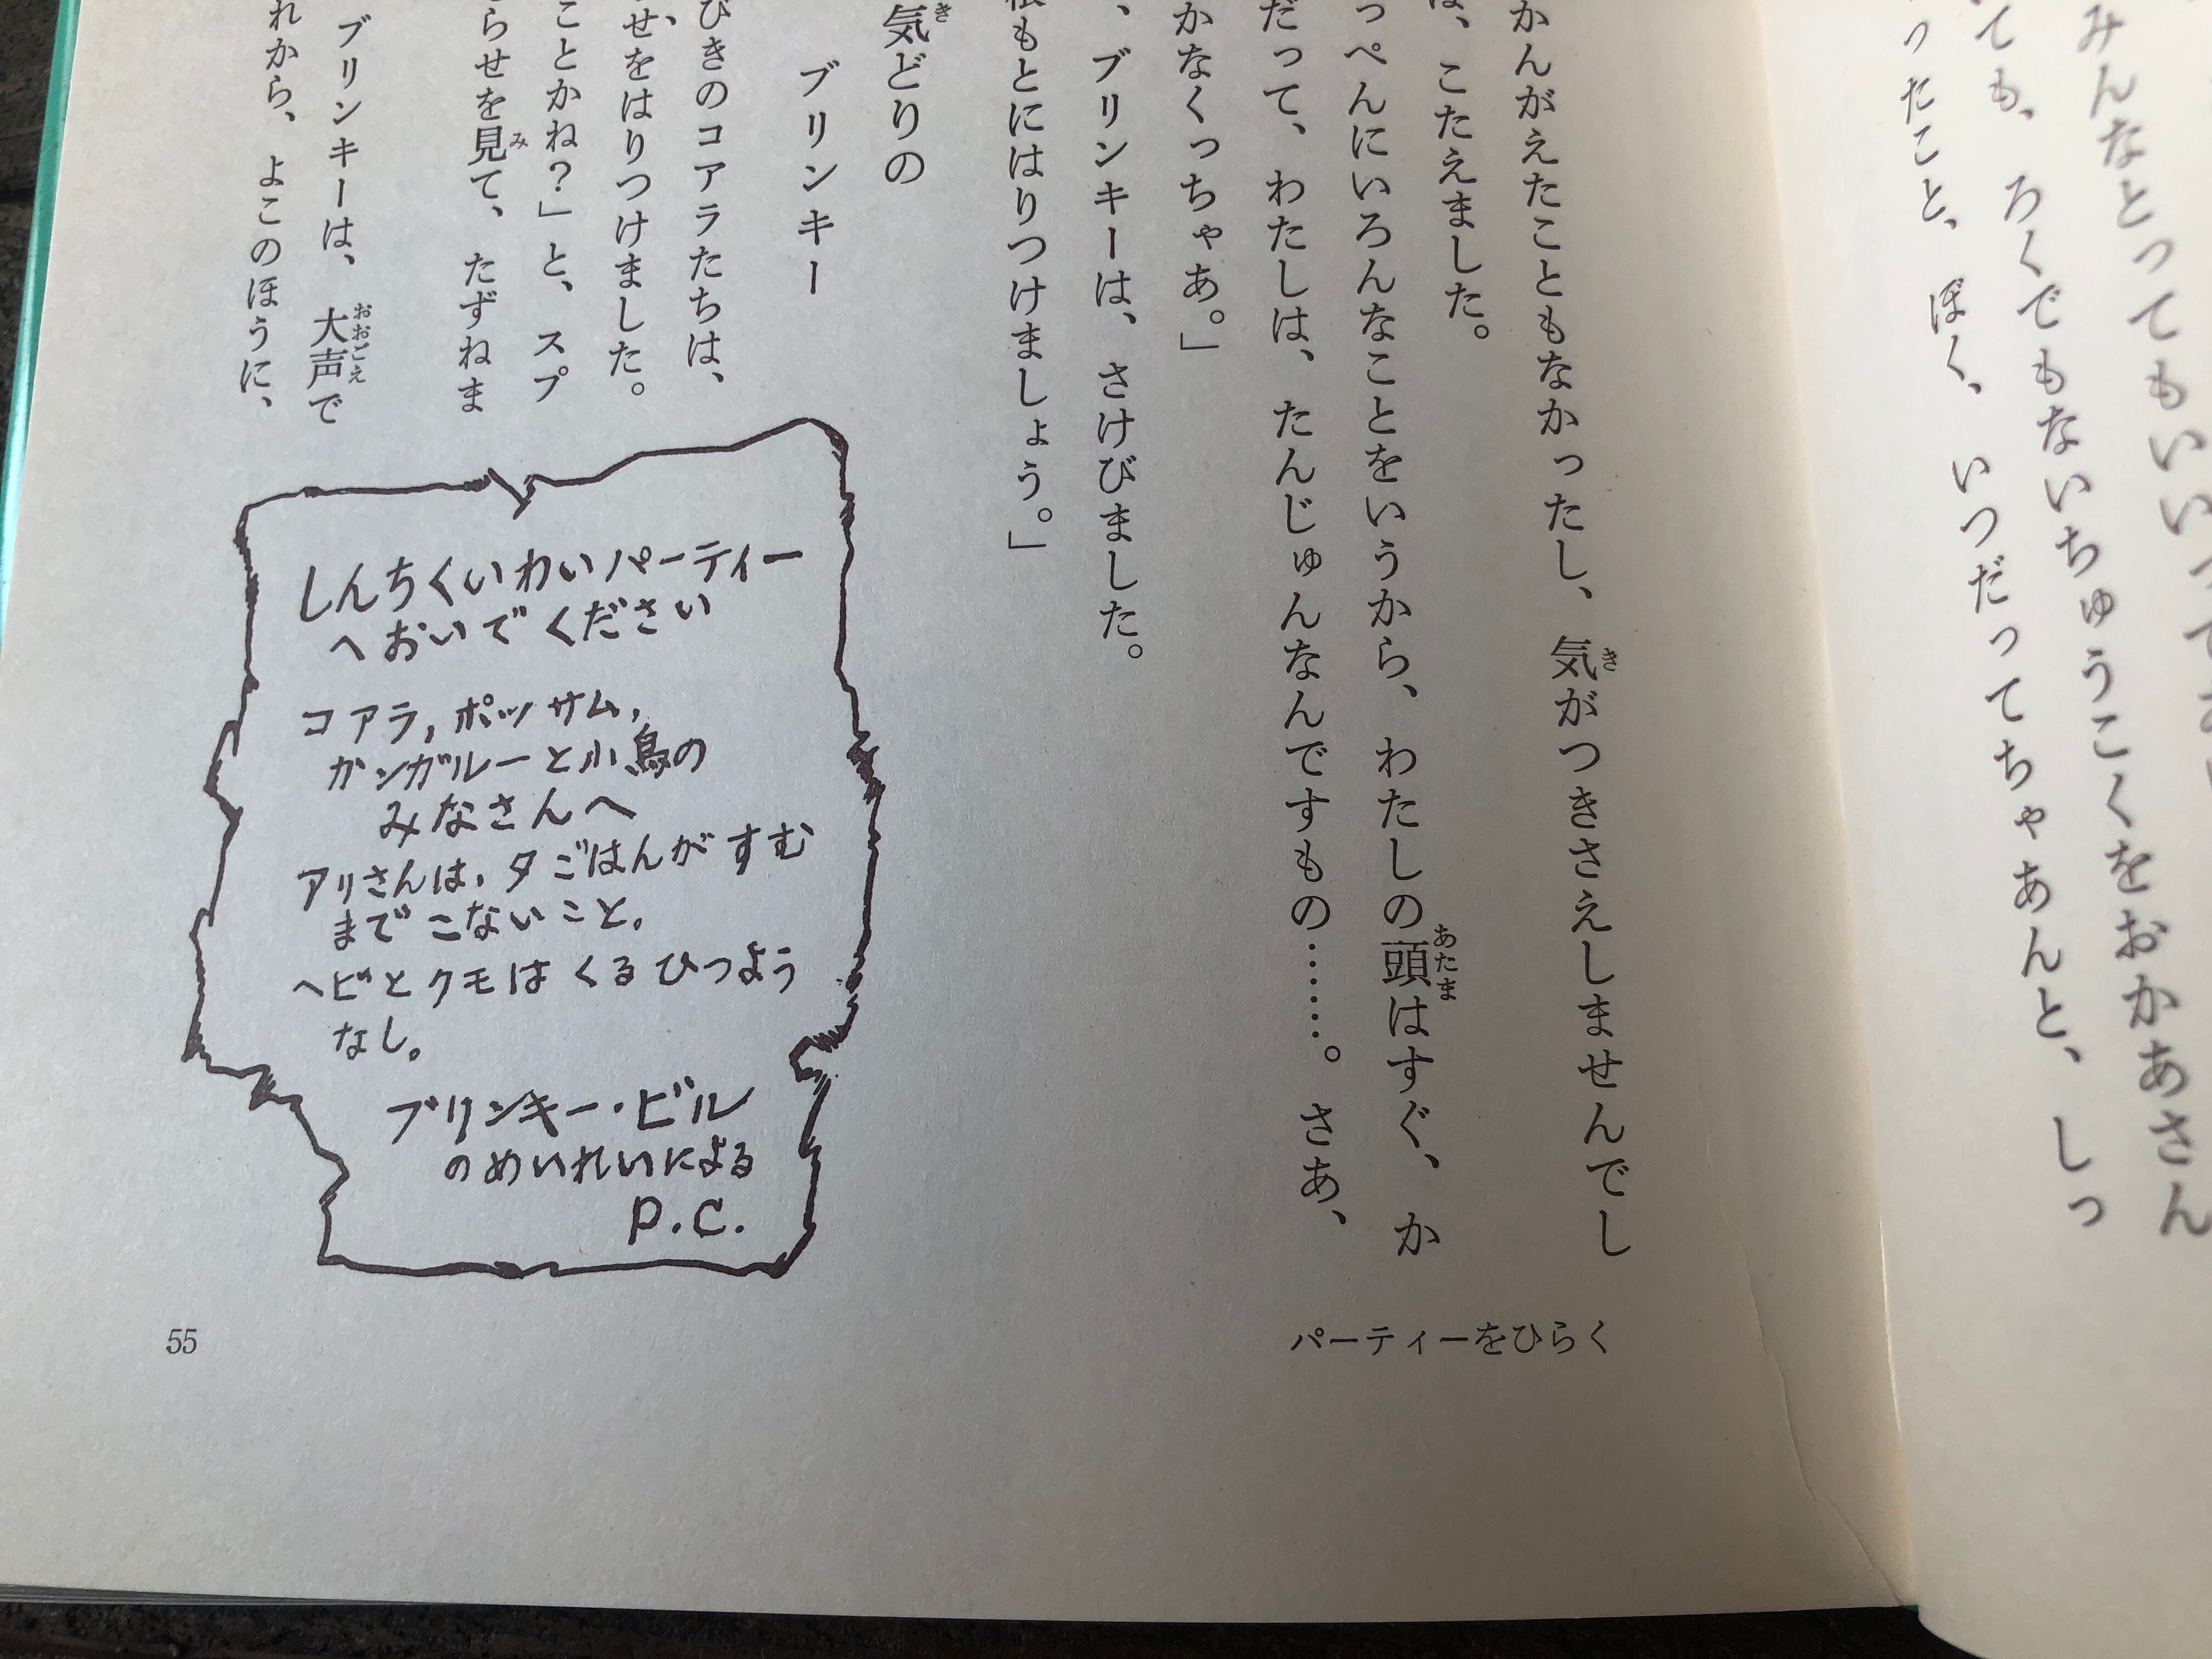 みんなとってもいいって
ても、ろくでもないちゅうこくをおかあさん
ったこと、ぼく、いつだってちゃあんと、しっ
かんがえたこともなかったし、気がつきさえしませんでし
は、こたえました。
っぺんにいろんなことをいうから、わたしの頭はすぐ、か
だって、わたしは、たんじゅんなんですもの……。さあ、
かなくっちゃあ。」
、ブリンキーは、さけびました。
根もとにはりつけましょう。」
気どりの
ブリンキー
びきのコアラたちは、
せをはりつけました。
ことかね?」と、スプ
らせを見て、たずねま
ブリンキーは、大声で
れから、よこのほうに、
しんちくいわいパーティー
へおいでください
コアラ,ポッサム,
カンガルーと小鳥の
みなさんへ
アリさんは,夕ごはんがすむ
までこないこと。
ヘビとクモはくるひつよう
なし。
ブリンキー・ビル
のめいれいによる
P.C.
パーティーをひらく
55